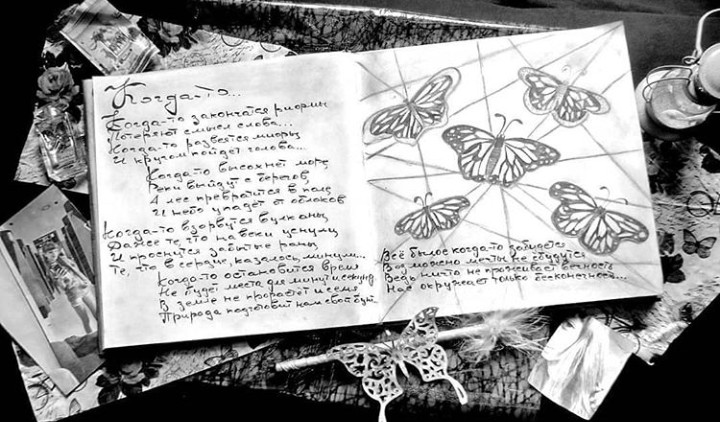 Когда-то...
Когда-то закончатся рифмы
Потеряют смысл слова...
Когда-то развеятся миоры
И кругом пойдет голова...
Когда-то высохнет море,
Реки выйдут с берегов,
А лес превратится в поле
И небо упадёт от облаков
Когда-то взорвутся вулканы,
Даже те, что навеки уснули,
И проснутся забытые раны,
Те, что в сердце, казалось, минули...
Когда-то остановится время
Не будет места для минут и секунд
В земле не прорастёт и семя
Природа подготовит нам свой бунт.
Всё былое когда-то забудется
Возможно мечты не сбудутся
Ведь никто не проживает вечность
Нас окружает только бесконечность...